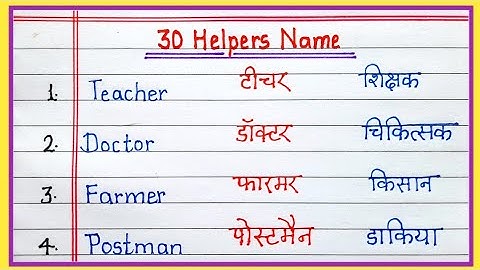 30 Helpers Name
1. Teacher टीचर शिक्षक
2. Doctor डॉक्टर चिकित्सक
3. Farmer फारमर किसान
4. Postman पोस्टमैन डाकिया